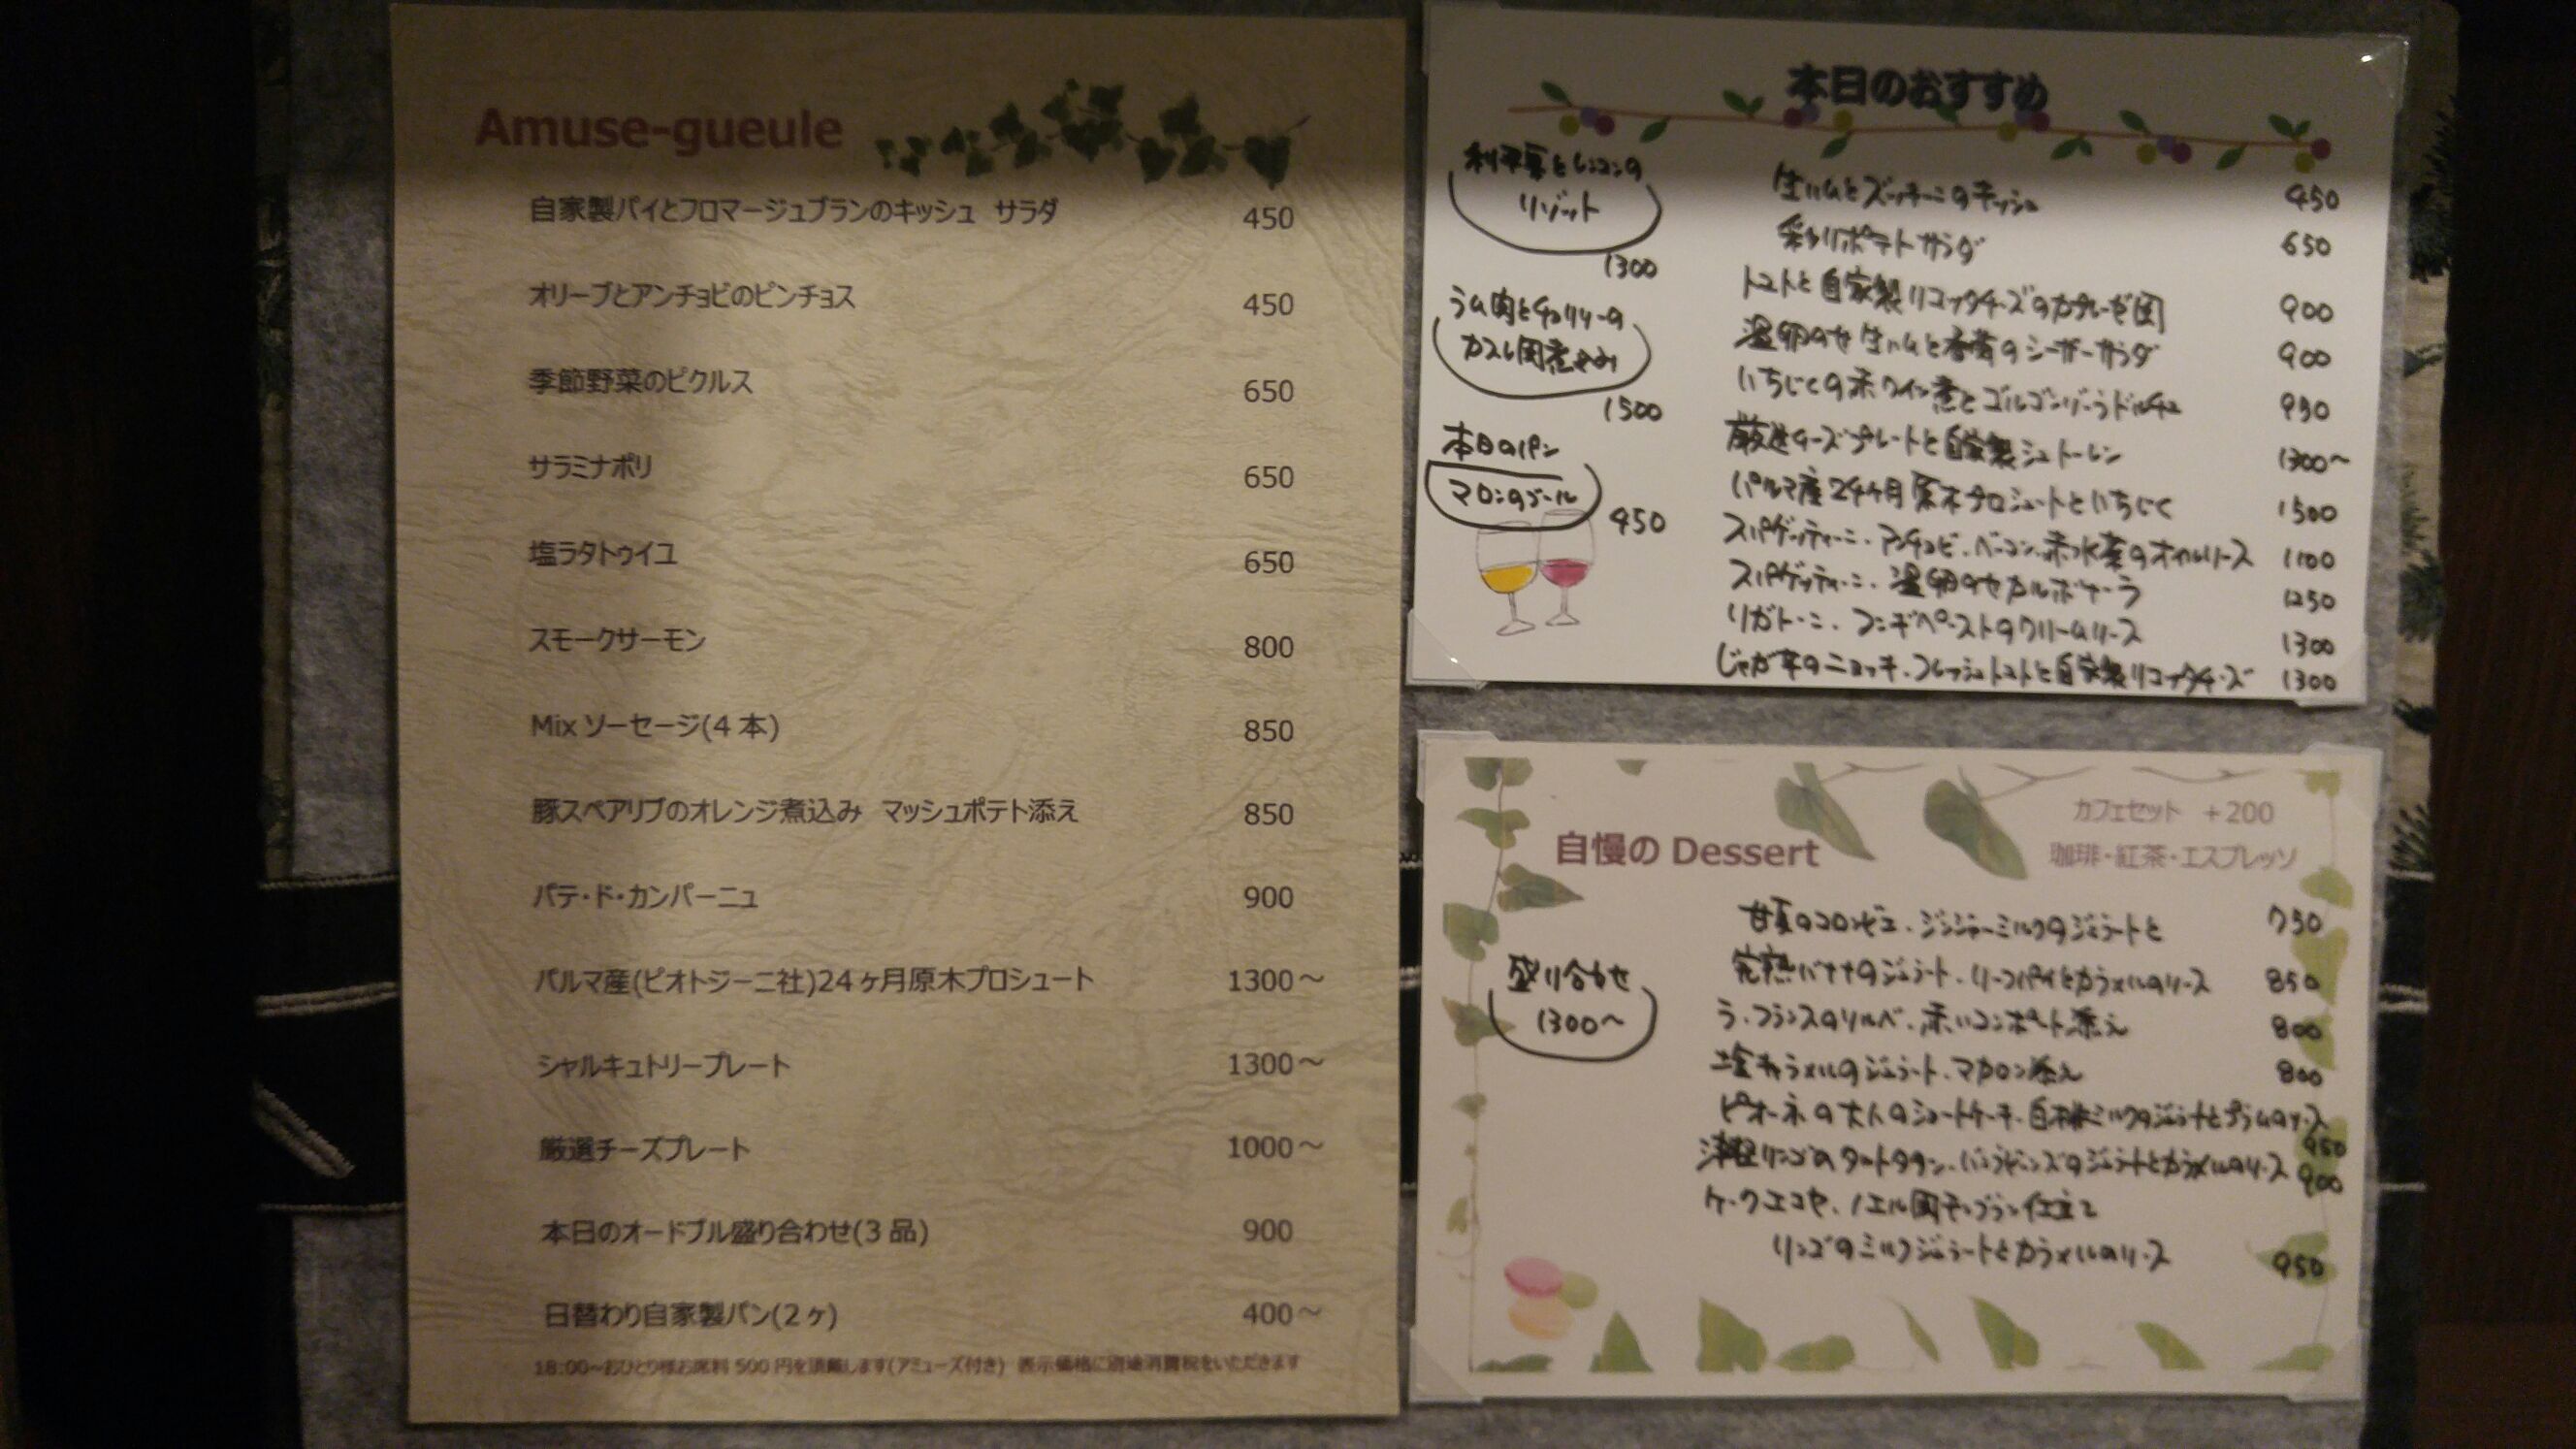 Amuse-gueule
自家製パイとフロマージュブランのキッシュ サラダ 450
オリーブとアンチョビのピンチョス 450
季節野菜のピクルス 650
サラミナポリ 650
塩ラタトゥイユ 650
スモークサーモン 800
Mix ソーセージ(4 本) 850
豚スペアリブのオレンジ煮込み マッシュポテト添え 850
パテ・ド・カンパーニュ 900
パルマ産(ピオトジーニ社)24ヶ月原木プロシュート 1300～
シャルキュトリープレート 1300～
厳選チーズプレート 1000～
本日のオードブル盛り合わせ(3 品) 900
日替わり自家製パン(2ヶ) 400～
18:00~おひとり様お席料 500 円を頂戴します(アミューズ付き) 表示価格に別途消費税をいただきます
本日のおすすめ
利平栗とレンコンの
リゾット
1300
ラム肉とチョリソーの
カスレ風煮込み
1500
本日のパン
マロンのブール
450
生ハムとズッキーニのキッシュ 450
彩りポテトサラダ 650
トマトと自家製リコッタチーズのカプレーゼ風 900
温卵のせ生ハムと香草のシーザーサラダ 900
いちじくの赤ワイン煮とゴルゴンゾーラドルチェ 950
厳選チーズプレートと自家製シュトーレン 1300～
パルマ産24ヶ月原木プロシュートといちじく 1500
スパゲッティーニ、アンチョビ、ベーコン、赤水菜のオイルソース 1100
スパゲッティーニ、温卵のせカルボナーラ 1250
リガトーニ、フンギペーストのクリームソース 1300
じゃが芋のニョッキ、フレッシュトマトと自家製リコッタチーズ 1300
自慢の Dessert
カフェセット +200
珈琲・紅茶・エスプレッソ
盛り合わせ
1300～
甘夏のコロンビエ、ジンジャーミルクのジェラートと 750
完熟バナナのジェラート、リーフパイとカラメルのソース 850
ラ・フランスのソルベ、赤いコンポート添え 800
塩キャラメルのジェラート、マカロン添え 800
ピオーネの大人のショートケーキ、白桃ミルクのジェラートとプラムのソース
950
津軽リンゴのタルトタタン、バニラビーンズのジェラートとカラメルのソース 900
ケークエコセ、ノエル風モンブラン仕立て
リンゴのミルクジェラートとカラメルのソース 950